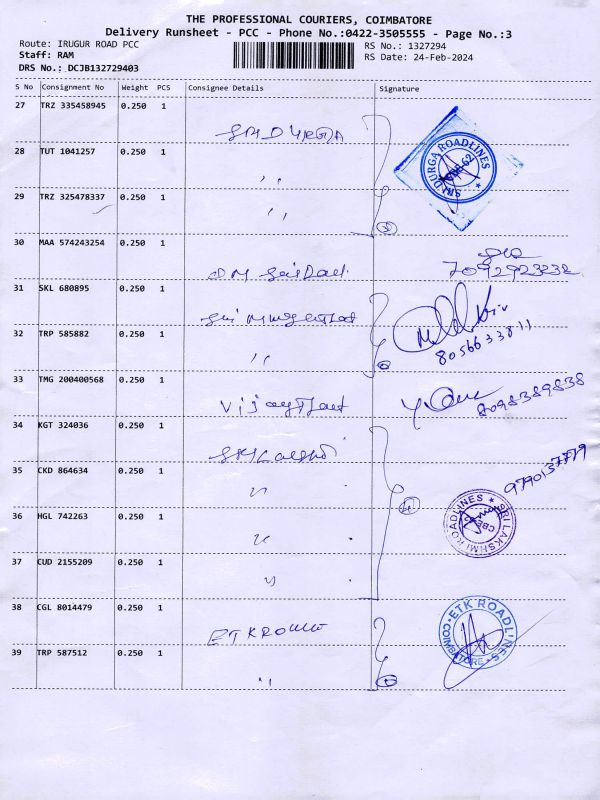 THE PROFESSIONAL COURIERS, COIMBATORE
Delivery Runsheet - PCC - Phone No.:0422-3505555 - Page No.:3
Route: IRUGUR ROAD PCC RS No.: 1327294
Staff: RAM RS Date: 24-Feb-2024
DRS No.: DCJB132729403
S No Consignment No Weight PCS Consignee Details Signature
27 TRZ 335458945 0.250 1
SRI DURGA
SRI DURGA ROADLINES
28 TUT 1041257 0.250 1
,,
29 TRZ 325478337 0.250 1
,,
30 MAA 574243254 0.250 1
7092923232
31 SKL 680895 0.250 1
8056633811
32 TRP 585882 0.250 1
,,
33 TMG 200400568 0.250 1
8098389838
34 KGT 324036 0.250 1
35 CKD 864634 0.250 1
,,
9790137779
36 HGL 742263 0.250 1
,,
SRI LAKSHMI ROADLINES
CBE
37 CUD 2155209 0.250 1
,,
38 CGL 8014479 0.250 1
ETK
ETK ROADLINES
COIMBATORE
39 TRP 587512 0.250 1
,,